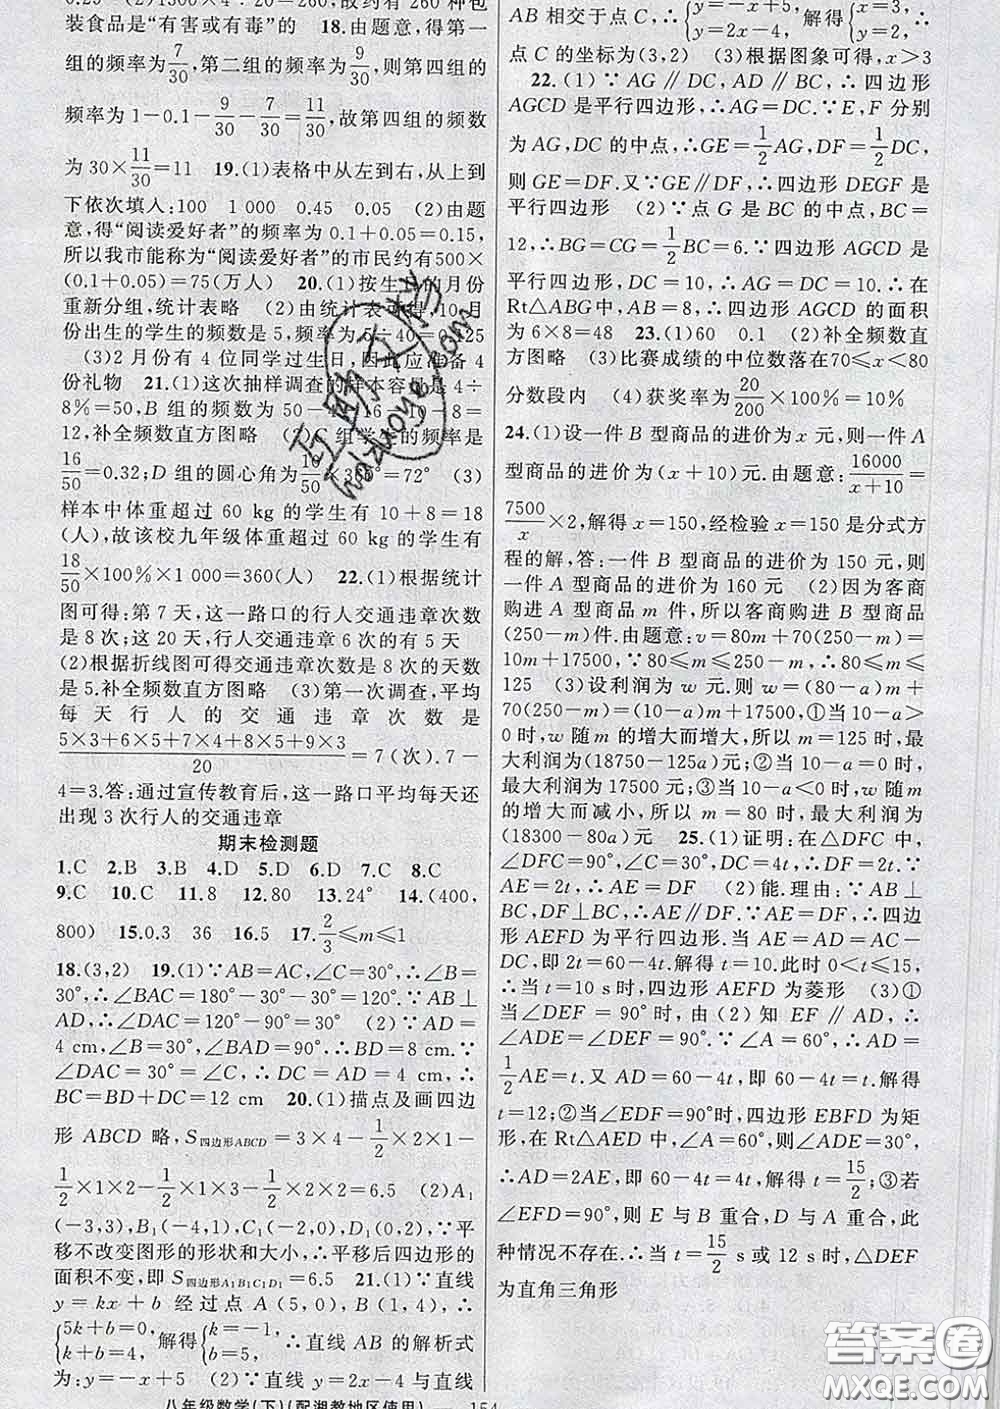 4÷20=0.2 (2)1300×4÷20=260,故约有260种包
装食品是“有害或有毒”的 18.由题意,得第一
组的频率为7/30,第二组的频率为9/30,则第四组的
频率为1-0.1-9/30-7/30=11/30,故第四组的频数
为30×11/30=11 19.(1)表格中从左到右,从上到
下依次填入:100 1 000 0.45 0.05 (2)由题
意,得“阅读爱好者”的频率为0.1+0.05=0.15,
所以我市能称为“阅读爱好者”的市民约有500×
(0.1+0.05)=75(万人) 20.(1)按生日的月份
重新分组,统计表略 (2)由统计表可得,10月
份出生的学生的频数是5,频率为5÷40=0.125
(3)2月份有4位同学过生日,因此应准备4
份礼物 21.(1)这次抽样调查的样本容量是4÷
8%=50,B组的频数为50-4-16-10-8=
12,补全频数直方图略 (2)C组学生的频率是
16/50=0.32;D组的圆心角为10/50×360°=72° (3)
样本中体重超过60 kg的学生有10+8=18
(人),故该校九年级体重超过60 kg的学生有
18/50×100%×1 000=360(人) 22.(1)根据统计
图可得:第7天,这一路口的行人交通违章次数
是8次;这20天,行人交通违章6次的有5天
(2)根据折线图可得交通违章次数是8次的天数
是5.补全频数直方图略 (3)第一次调查,平均
每天行人的交通违章次数是
(5×3+6×5+7×4+8×5+9×3)/20=7(次).7-
4=3.答:通过宣传教育后,这一路口平均每天还
出现3次行人的交通违章
期末检测题
1.C 2.B 3.B 4.D 5.D 6.D 7.C 8.C
9.C 10.C 11.8 12.80 13.24° 14.(400,
800) 15.0.3 36 16.5 17.2/3≤m≤1
18.(3,2) 19.(1)∵AB=AC,∠C=30°,∴∠B=
30°,∴∠BAC=180°-30°-30°=120°.∵AB⊥
AD,∴∠DAC=120°-90°=30° (2)∵AD=
4 cm,∠B=30°,∠BAD=90°,∴BD=8 cm.∵
∠DAC=30°=∠C,∴DC=AD=4 cm,∴
BC=BD+DC=12 cm 20.(1)描点及画四边
形ABCD略,S四边形ABCD=3×4-1/2×2×1-
1/2×1×2-1/2×1×3-1/2×2×2=6.5 (2)A₁
(-3,3),B₁(-4,1),C₁(-2,0),D₁(0,2),∵平
移不改变图形的形状和大小,∴平移后四边形的
面积不变,即S四边形A₁B₁C₁D₁=6.5 21.(1)∵直线
y=kx+b经过点A(5,0),B(1,4),∴
{5k+b=0, k+b=4, 解得{k=-1, b=5, ∴直线AB的解析式
为:y=-x+5 (2)∵直线y=2x-4与直线
八年级数学(下)(配湘教地区使用) — 154
AB相交于点C,∴{y=-x+5, y=2x-4, 解得{
点C的坐标为(3,2) (3)根据图象可得,x>3
22.(1)∵AG∥DC,AD∥BC,∴四边形
AGCD是平行四边形,∴AG=DC.∵E,F分别
为AG,DC的中点,∴GE=1/2AG,DF=1/2DC,
则GE=DF.又∵GE∥DF,∴四边形DEGF是
平行四边形 (2)∵点G是BC的中点,BC=
12,∴BG=CG=1/2BC=6.∵四边形AGCD是
平行四边形,DC=10,∴AG=DC=10.在
Rt△ABG中,AB=8,∴四边形AGCD的面积
为6×8=48 23.(1)60 0.1 (2)补全频数直
方图略 (3)比赛成绩的中位数落在70≤x<80
分数段内 (4)获奖率为20/200×100%=10%
24.(1)设一件B型商品的进价为x元,则一件A
型商品的进价为(x+10)元.由题意:16000/(x+10)=
7500/x×2,解得x=150,经检验x=150是分式方
程的解,答:一件B型商品的进价为150元,一
件A型商品的进价为160元 (2)因为客商
购进A型商品m件,所以客商购进B型商品
(250-m)件.由题意:v=80m+70(250-m)=
10m+17500,∵80≤m≤250-m,∴80≤m≤
125 (3)设利润为w元.则w=(80-a)m+
70(250-m)=(10-a)m+17500,①当10-a>
0时,w随m的增大而增大,所以m=125时,最
大利润为(18750-125a)元;②当10-a=0时,
最大利润为17500元;③当10-a<0时,w随m
的增大而减小,所以m=80时,最大利润为
(18300-80a)元 25.(1)证明:在△DFC中,
∠DFC=90°,∠C=30°,DC=4t,∴DF=2t.又∵
AE=2t,∴AE=DF (2)能.理由:∵AB⊥
BC,DF⊥BC,∴AE∥DF.∵AE=DF,∴四边
形AEFD为平行四边形.当AD=AE时,
▱AEFD为菱形.∵∠C=30°,∴∠A=60°,
DC,即2t=60-4t.解得t=10.此时0<t≤15,
∴当t=10 s时,四边形AEFD为菱形 (3)①
当∠DEF=90°时,由(2)知EF∥AD,∴
∠ADE=∠DEF=90°.∵∠A=60°,∴AD=
1/2AE=t.又AD=60-4t,即60-4t=t.解得
t=12;②当∠EDF=90°时,四边形EBFD为矩
形,在Rt△AED中,∠A=60°,则∠ADE=30°,
∴AD=2AE,即60-4t=4t,解得t=15/2;③若
∠EFD=90°,则E与B重合,D与A重合,此
种情况不存在.∴当t=15/2 s或12 s时,△DEF
为直角三角形
答案圈
MXQE.COM